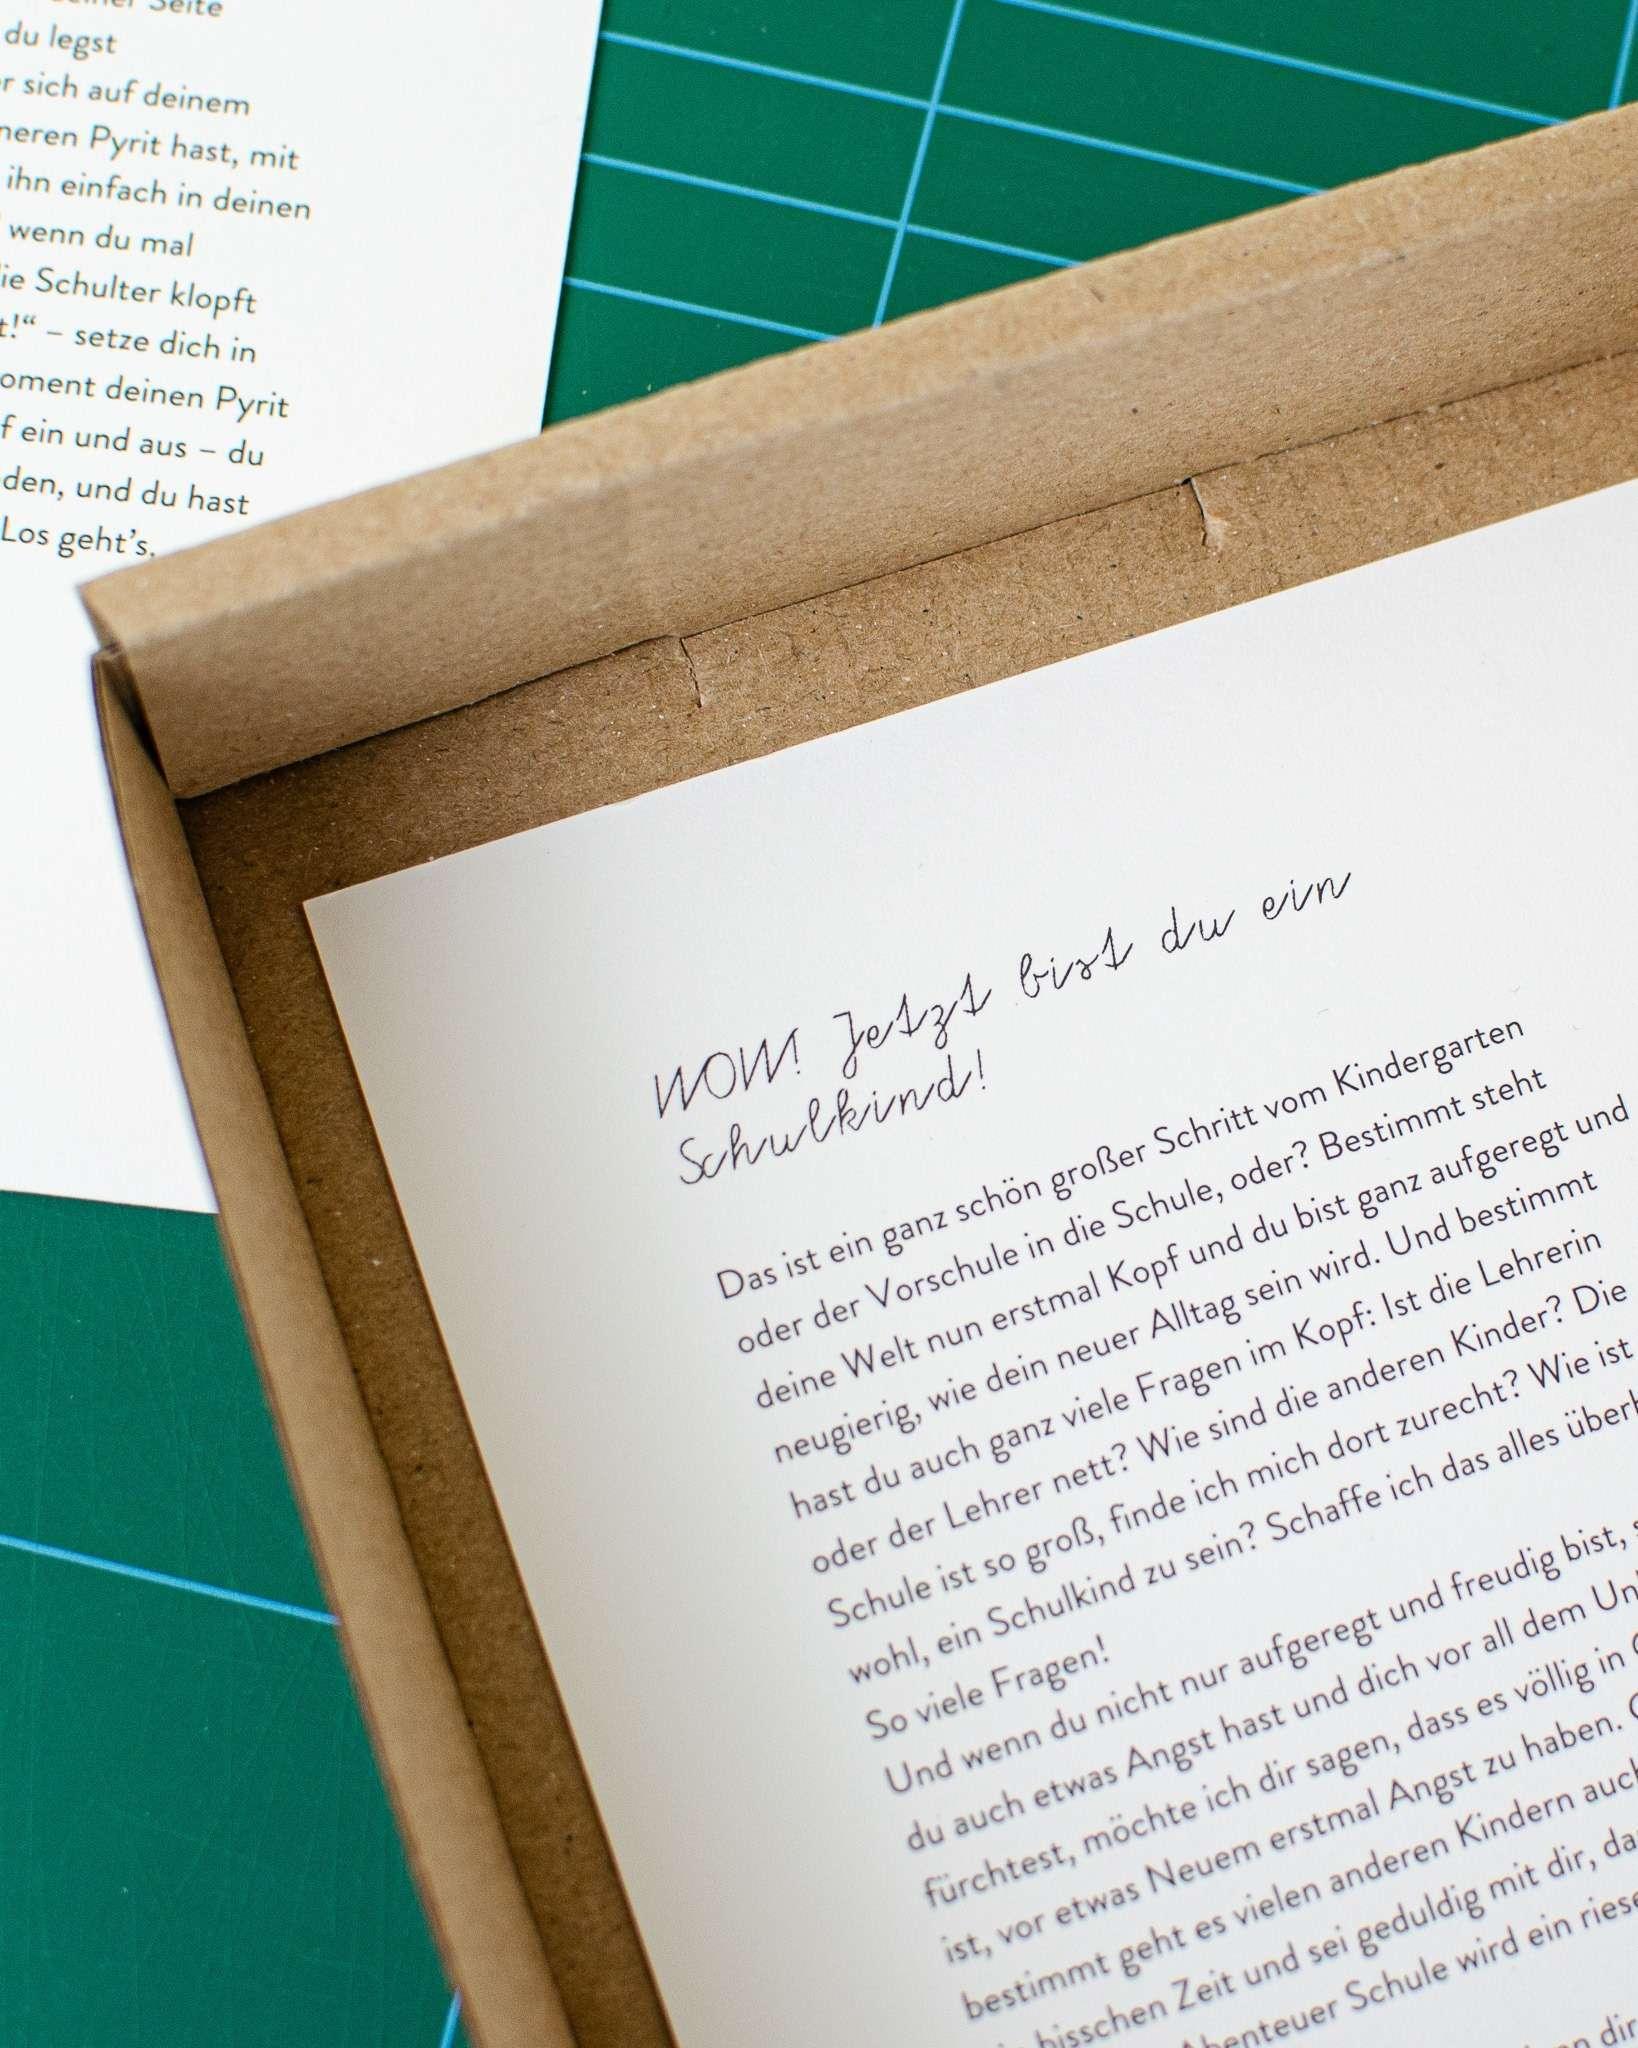 Seite
du legst
sich auf deinem
Pyrit hast, mit
ihn einfach in deinen
wenn du mal
Schulter klopft
– setze dich in
deinen Pyrit
ein und aus – du
und du hast
Los geht’s.
WOW! Jetzt bist du ein
Schulkind!
Das ist ein ganz schön großer Schritt vom Kindergarten
oder der Vorschule in die Schule, oder? Bestimmt steht
deine Welt nun erstmal Kopf und du bist ganz aufgeregt und
neugierig, wie dein neuer Alltag sein wird. Und bestimmt
hast du auch ganz viele Fragen im Kopf: Ist die Lehrerin
oder der Lehrer nett? Wie sind die anderen Kinder? Die
Schule ist so groß, finde ich mich dort zurecht? Wie ist
wohl, ein Schulkind zu sein? Schaffe ich das alles
So viele Fragen!
Und wenn du nicht nur aufgeregt und freudig bist,
du auch etwas Angst hast und dich vor all dem
fürchtest, möchte ich dir sagen, dass es völlig in
ist, vor etwas Neuem erstmal Angst zu haben.
bestimmt geht es vielen anderen Kindern
bisschen Zeit und sei geduldig mit dir,
Abenteuer Schule wird ein
dir